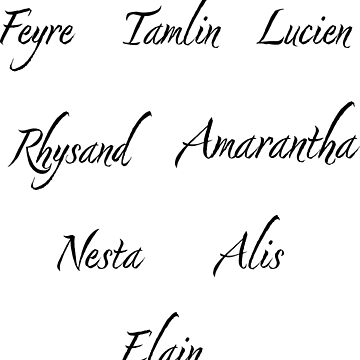 Feyre Tamlin Lucien
Rhysand Amarantha
Nesta Alis
Elain